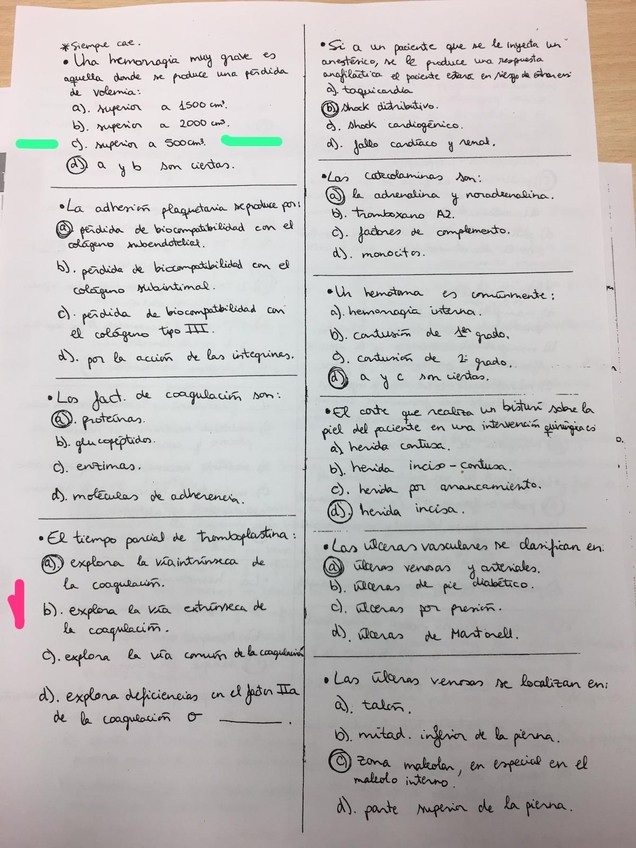 *Siempre cae.
• Una hemorragia muy grave es
aquella donde se produce una pérdida
de volemia:
a). superior a 1500 cm³.
b). superior a 2000 cm³.
c). superior a 500cm³.
d). a y b son ciertas.
• La adhesión plaquetaria se produce por:
a) pérdida de biocompatibilidad con el
colágeno subendotelial.
b). pérdida de biocompatibilidad con el
colágeno subintimal.
c). pérdida de biocompatibilidad con
el colágeno tipo III.
d). por la acción de las integrinas.
• Los fact. de coagulación son:
a). proteínas.
b). glucopéptidos.
c). enzimas.
d). moléculas de adherencia.
• El tiempo parcial de tromboplastina:
a). explora la vía intrínseca de
la coagulación.
b). explora la vía extrínseca de
la coagulación.
c). explora la vía común de la coagulación
d). explora deficiencias en el factor IIa
de la coagulación o ______.
• Si a un paciente que se le inyecta un
anestésico, se le produce una respuesta
anafiláctica el paciente estará en riesgo de entrar en:
a) taquicardia
b) shock distributivo.
c). shock cardiogénico.
d). fallo cardíaco y renal.
• Las catecolaminas son:
a) la adrenalina y noradrenalina.
b). tromboxano A2.
c). factores de complemento.
d). monocitos.
• Un hematoma es comúnmente:
a). hemorragia interna.
b). contusión de 1er grado.
c). contusión de 2º grado.
d) a y c son ciertas.
• El corte que realiza un bisturí sobre la
piel del paciente en una intervención quirúrgica es
a) herida contusa.
b). herida inciso-contusa.
c). herida por arrancamiento.
d). herida incisa.
• Las úlceras vasculares se clasifican en:
a) úlceras venosas y arteriales.
b). úlceras de pie diabético.
c). úlceras por presión.
d). úlceras de Martorell.
• Las úlceras venosas se localizan en:
a). talón.
b). mitad inferior de la pierna.
c) zona maleolar, en especial en el
maleolo interno.
d). parte superior de la pierna.